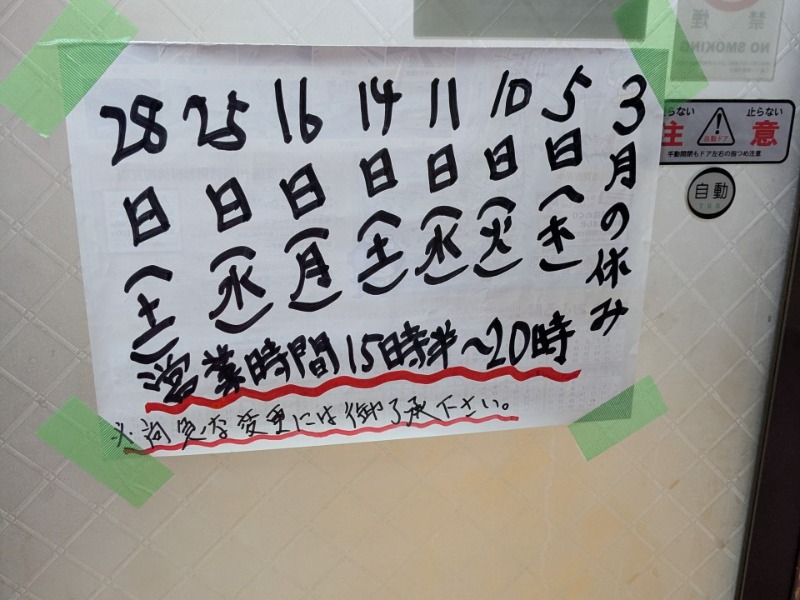 3月の休み
5日(木)
10日(火)
11日(水)
14日(土)
16日(月)
25日(水)
28日(土)
営業時間15時半~20時
※ 急な変更には御了承下さい。
禁煙
NO SMOKING
らない 止らない
主 自動ドア 意
手動開閉もドア左右の指つめ注意
自動